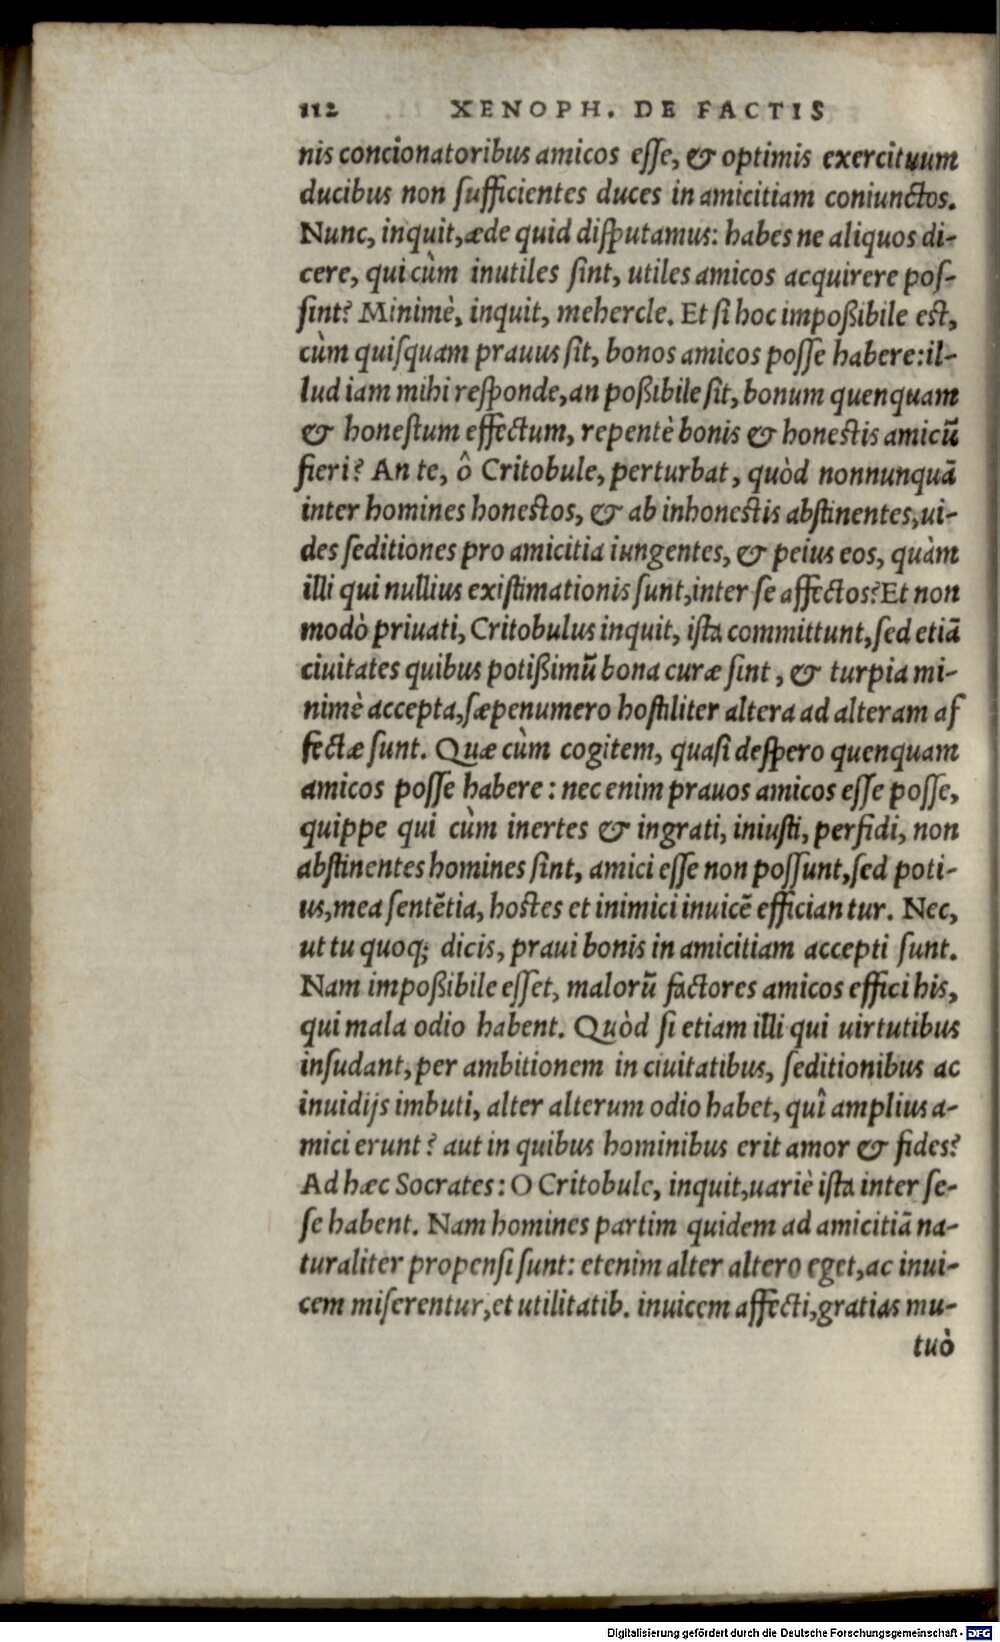 112 XENOPH. DE FACTIS
nis concionatoribus amicos eſſe, & optimis exercituum
ducibus non ſufficientes duces in amicitiam coniunctos.
Nunc, inquit, æde quid diſputamus: habes ne aliquos di-
cere, qui cùm inutiles ſint, utiles amicos acquirere poſ-
ſint? Minimè, inquit, mehercle. Et ſi hoc impoßibile est,
cùm quiſquam prauus ſit, bonos amicos poſſe habere: il-
lud iam mihi reſponde, an poßibile ſit, bonum quenquam
& honeſtum effectum, repentè bonis & honestis amicū
fieri? An te, ô Critobule, perturbat, quòd nonnunquā
inter homines honestos, & ab inhonestis abſtinentes, ui-
des ſeditiones pro amicitia iungentes, & peius eos, quàm
illi qui nullius exiſtimationis ſunt, inter ſe affectos? Et non
modò priuati, Critobulus inquit, iſta committunt, ſed etiā
ciuitates quibus potißimū bona curæ ſint, & turpia mi-
nimè accepta, ſæpenumero hoſtiliter altera ad alteram af
fectæ ſunt. Quæ cùm cogitem, quaſi deſpero quenquam
amicos poſſe habere: nec enim prauos amicos eſſe poſſe,
quippe qui cùm inertes & ingrati, iniuſti, perfidi, non
abſtinentes homines ſint, amici eſſe non poſſunt, ſed poti-
us, mea ſentētia, hostes et inimici inuicē efficiantur. Nec,
ut tu quoq; dicis, praui bonis in amicitiam accepti ſunt.
Nam impoßibile eſſet, malorū factores amicos effici his,
qui mala odio habent. Quòd ſi etiam illi qui uirtutibus
inſudant, per ambitionem in ciuitatibus, ſeditionibus ac
inuidijs imbuti, alter alterum odio habet, quî amplius a-
mici erunt? aut in quibus hominibus erit amor & fides?
Ad hæc Socrates: O Critobule, inquit, uariè iſta inter ſe-
ſe habent. Nam homines partim quidem ad amicitiā na-
turaliter propenſi ſunt: etenim alter altero eget, ac inui-
cem miſerentur, et utilitatib. inuicem affecti, gratias mu-
tuò
Digitalisierung gefördert durch die Deutsche Forschungsgemeinschaft - DFG